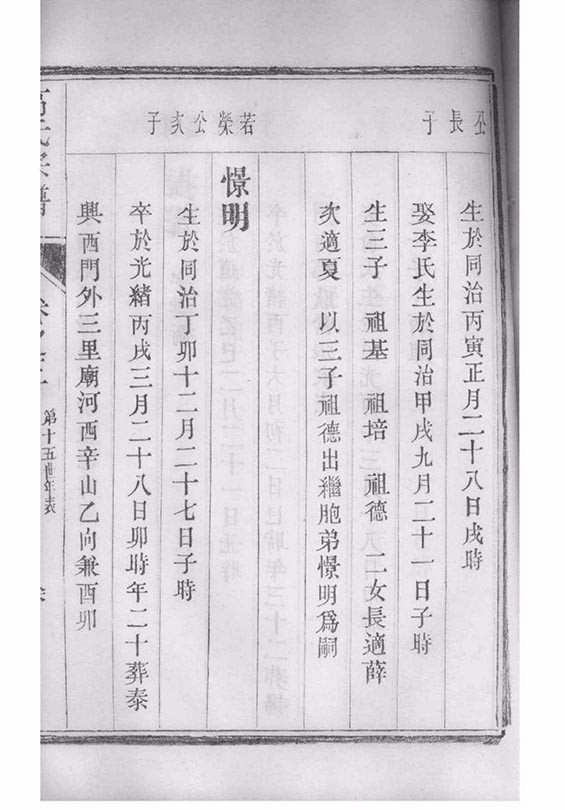 公長子
生於同治丙寅正月二十八日戌時
娶李氏生於同治甲戌九月二十一日子時
生三子 祖基 祖培 祖德 二女長適薛
次適夏 以三子祖德出繼胞弟憬明爲嗣
若榮公次子
憬明
生於同治丁卯十二月二十七日子時
卒於光緒丙戌三月二十八日卯時年二十葬泰
興西門外三里廟河西辛山乙向兼酉卯
第十五世年表